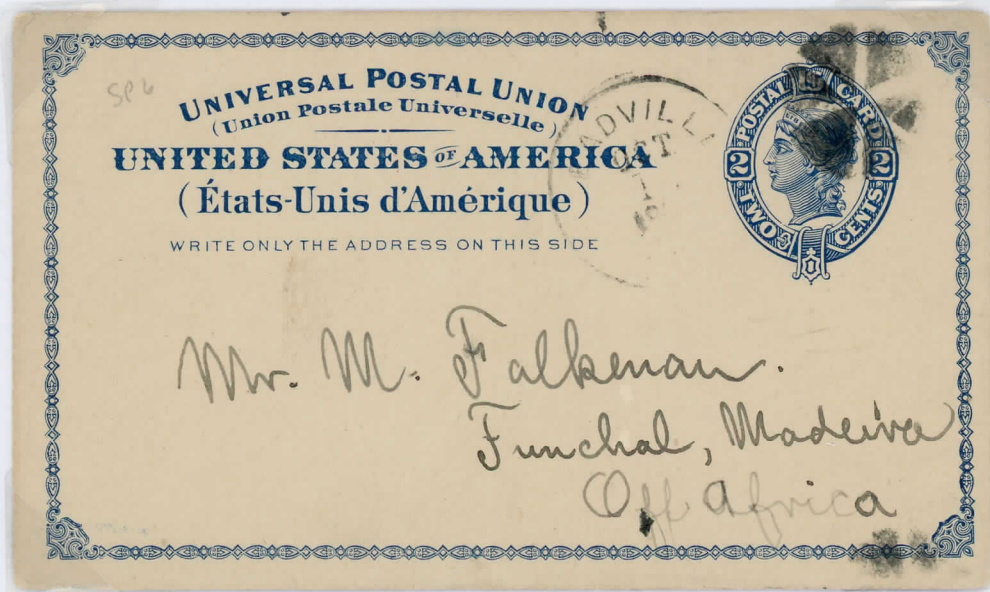 SP 6
UNIVERSAL POSTAL UNION
(Union Postale Universelle)
UNITED STATES OF AMERICA
(États-Unis d'Amérique)
WRITE ONLY THE ADDRESS ON THIS SIDE
EADVILL
OCT
1
POSTAL CARD
2 2
TWO CENTS
Mr. M. Falkenau.
Funchal, Madeira
Off Africa